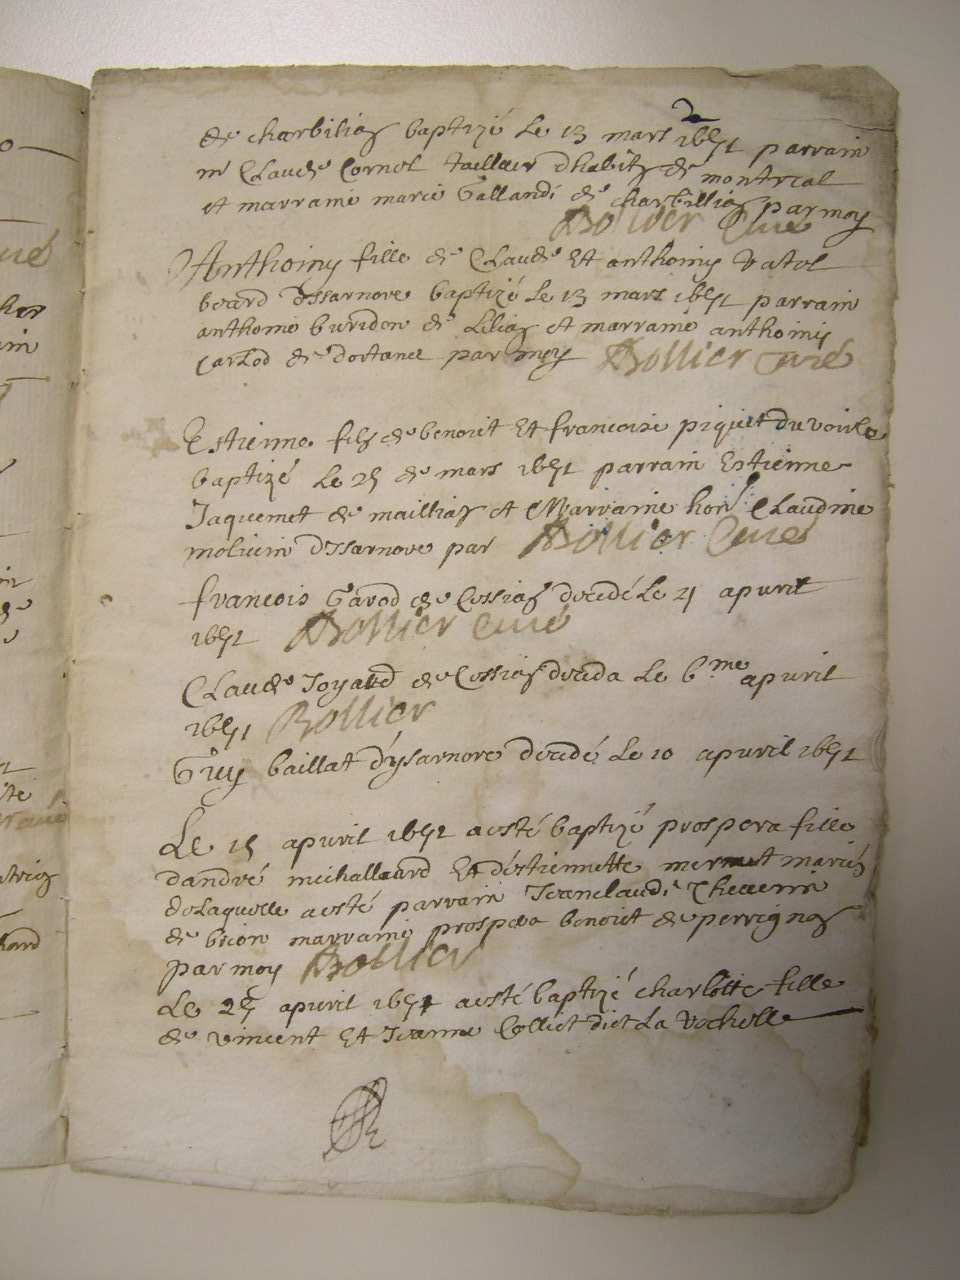 2
de charbilliaz baptizé Le 13 mars 1651 parrain
mr Claude Cornet tailleur dhabitz de montreal
et marraine marie Gallandi de charbilliaz par moy
Bollier Curé
Anthoiny fille de Claude Et anthoiny
dIssarnove baptizé Le 13 mars 1651 parrain
anthoine buridon de Liliaz et marraine anthoiny
de dortanc par moy Bollier curé
Estienne filz de benoit Et francoise piquet du voirle
baptizé Le 25 de mars 1651 parrain Estienne
Jaquemet de mailliaz et Marraine hon Claudine
molinin dIssarnove par Bollier Curé
francois Garod de Cessiaz decedé Le 21 apuril
1651 Bollier curé
Claude Joyard de Cessiaz deceda Le 6me apuril
1651 Bollier
Guy baillat dysarnove decedé Le 10 apuril 1651
Le 15 apuril 1651 a esté baptizé prospera fille
dandré michallard Et destiennette mermet mariés
de Laquelle a esté parrain Jeanclaude
de brion marraine prospera benoit de perrignaz
par moy Bollier
Le apuril 1651 a esté baptizé charlotte fille
de vincent Et Jeanne Collet dict La